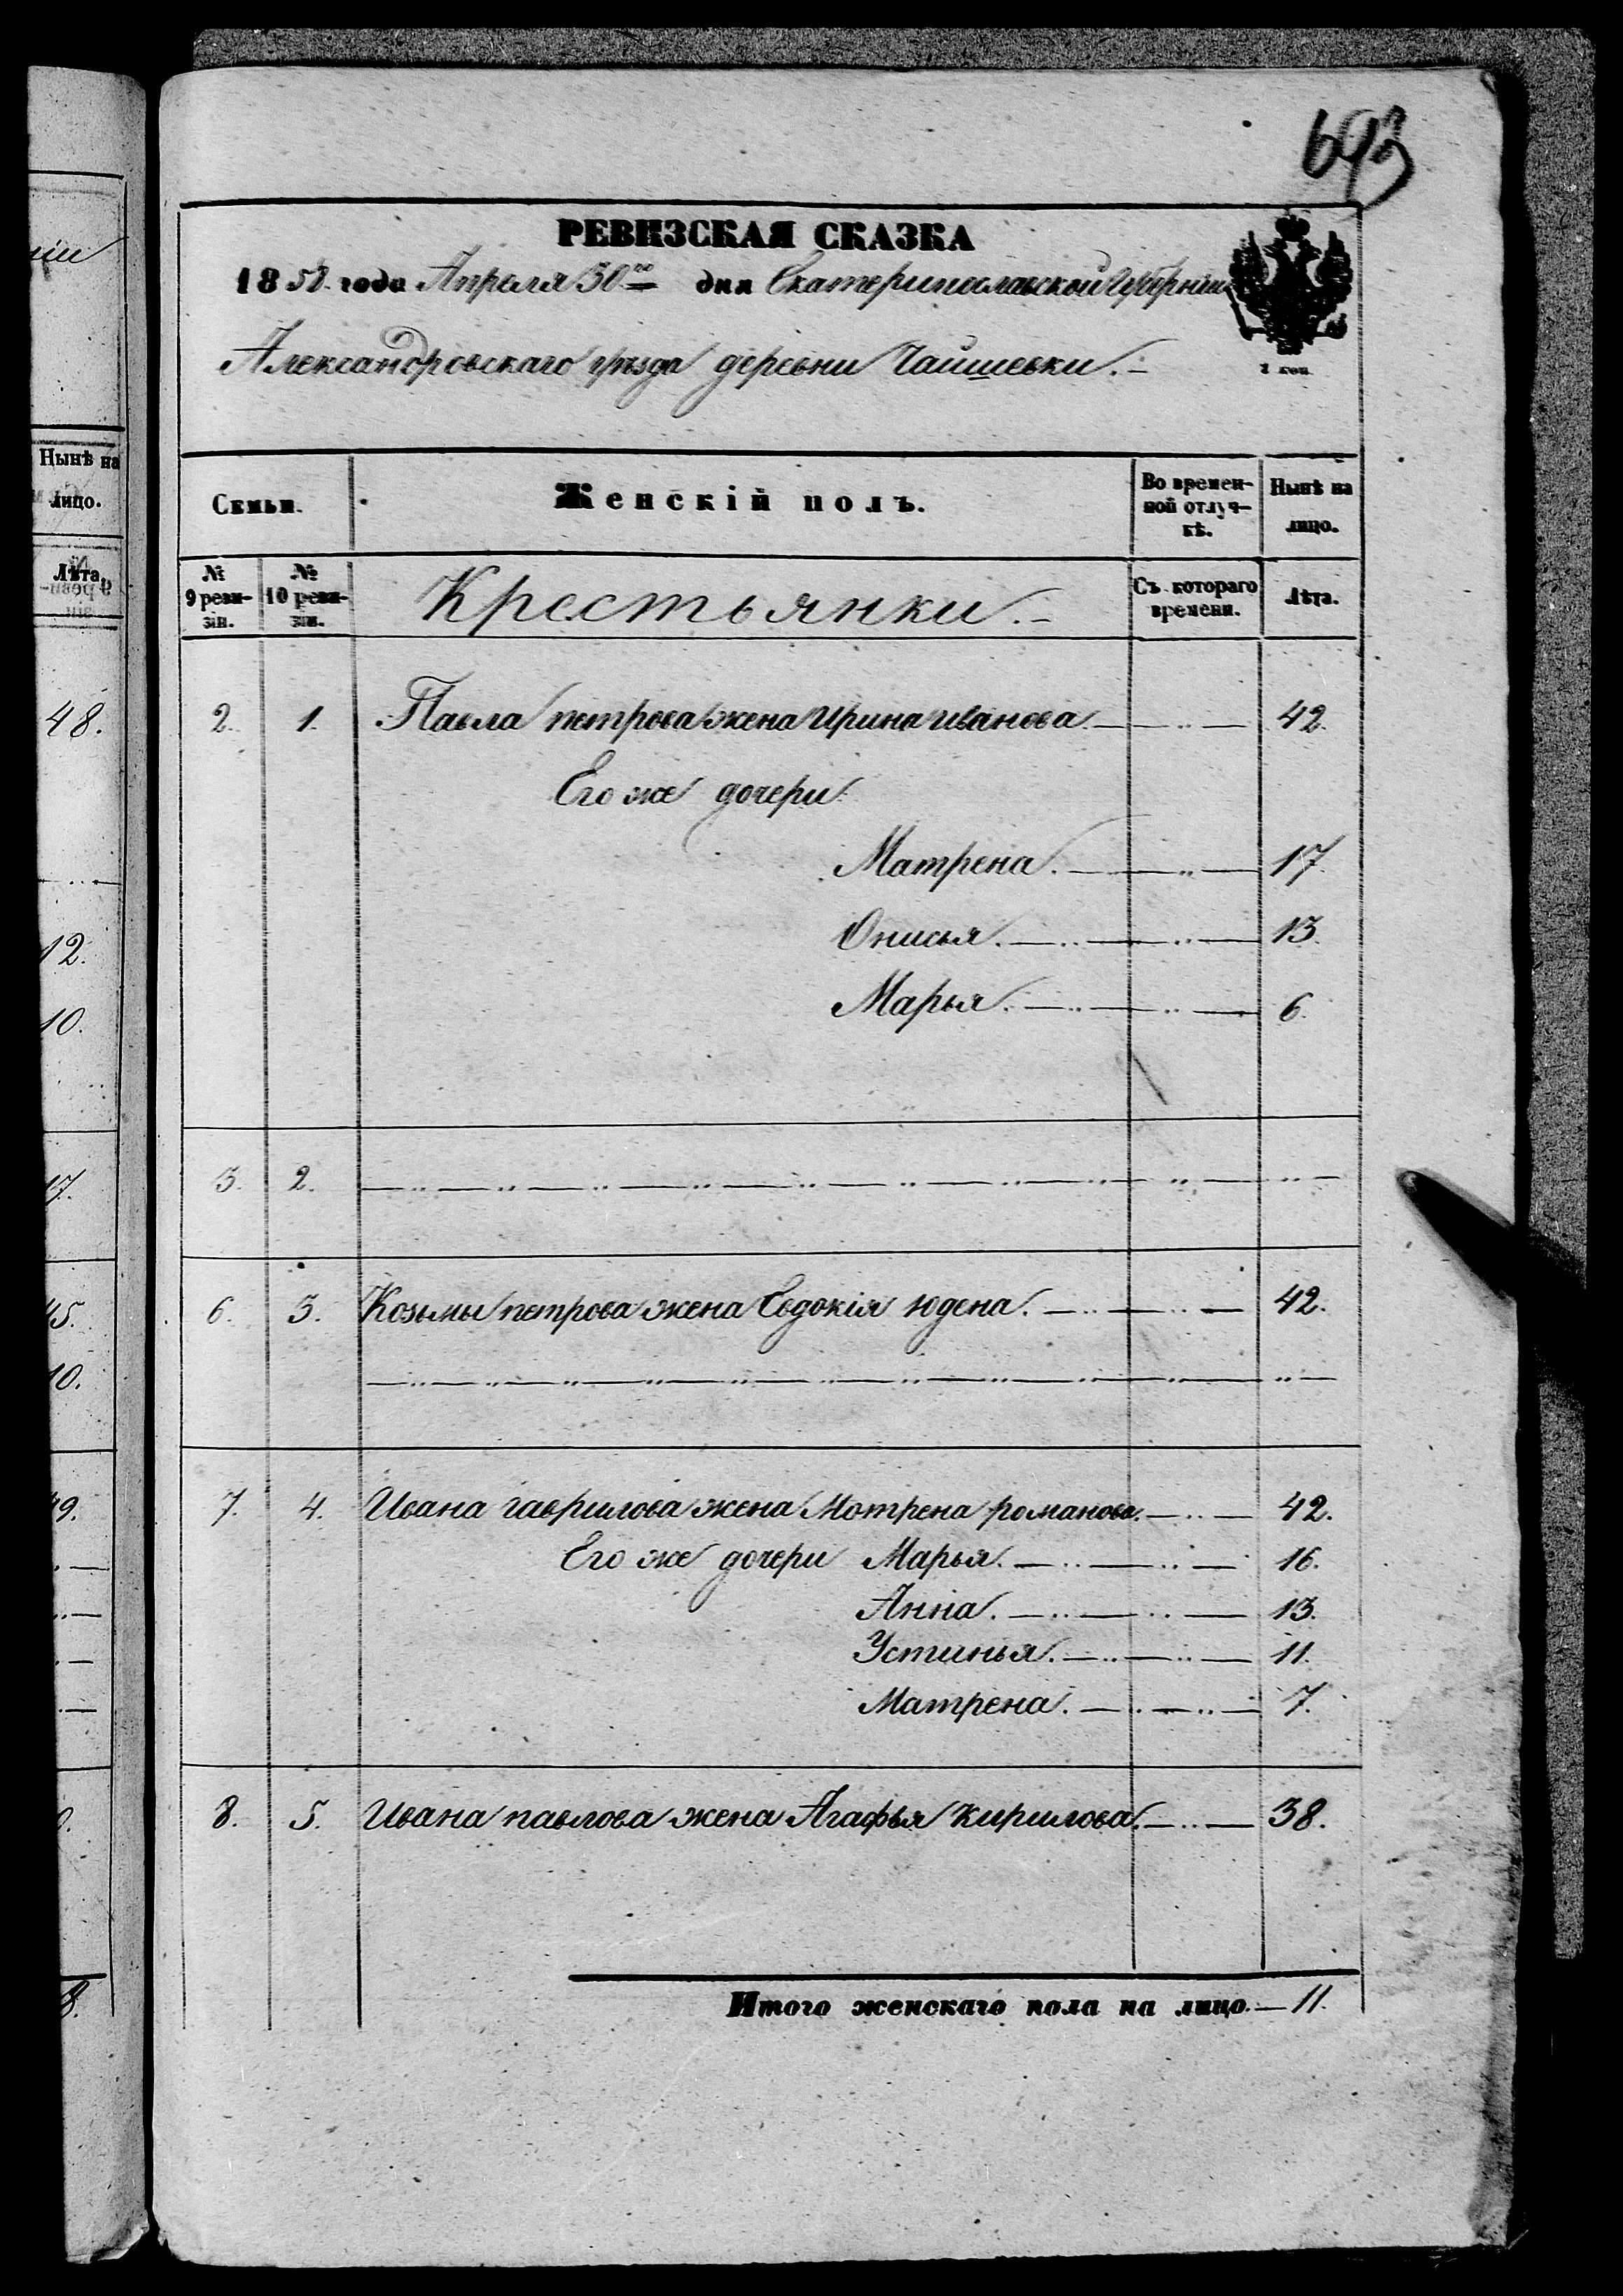 693
РЕВИЗСКАЯ СКАЗКА
1858 года Апреля 30го дня Екатеринославской Губерніи
Александровскаго уѣзда деревни Чаишевки.
1 коп.
Семьи. Женскій полъ. Во времен-ной отлуч-кѣ. Нынѣ на лицо.
№ 9 реви-зіи. № 10 реви-зіи. Крестьянки. Съ котораго времени. Лѣта.
2. 1. Павла петрова жена Ирина иванова 42.
Его же дочери
Матрена. 17.
Онисья. 13.
Марья. 6.
3. 2.
6. 3. Козьмы петрова жена Евдокія юдена. 42.
7. 4. Ивана гаврилова жена Мотрена романова. 42.
Его же дочери Марья. 16.
Анна. 13.
Устинья. 11.
Матрена. 7.
8. 5. Ивана павлова жена Агафья кирилова. 38.
Итого женскаго пола на лицо. 11.
Нынѣ на
лицо.
Лѣта.
48.
12.
10.
17.
45.
10.